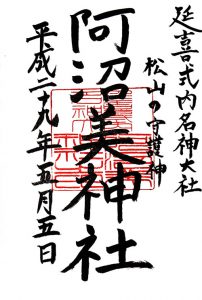 延喜式内名神大社
松山の守護神
阿沼美神社
平成二十九年五月五日